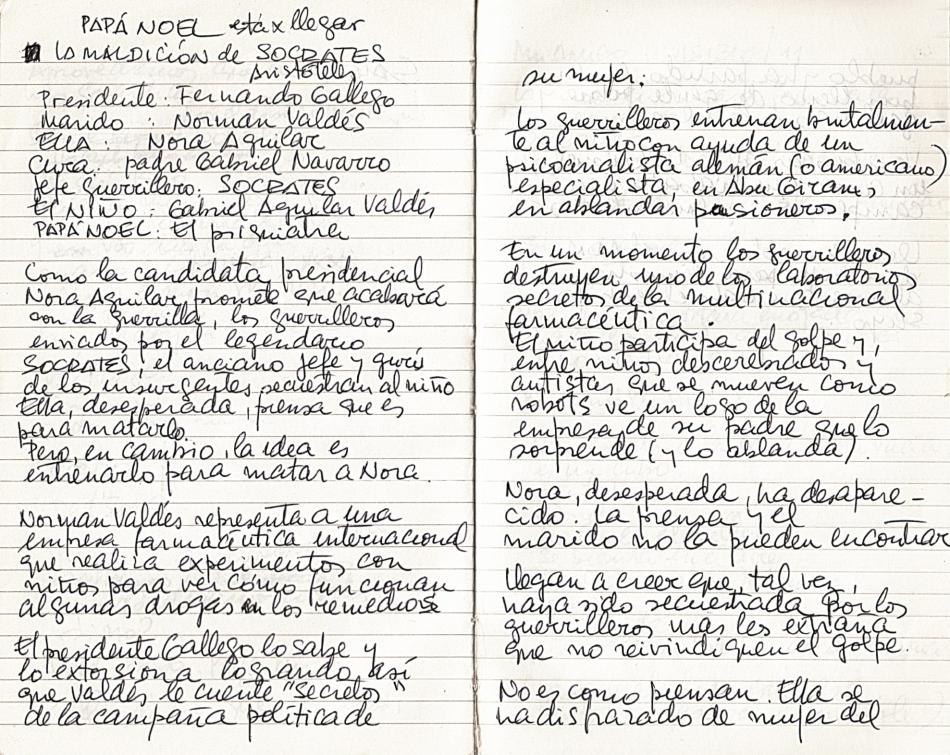 PAPÁ NOEL está x llegar
LA MALDICIÓN de SOCRATES
Aristóteles
Presidente: Fernando Gallego
Marido : Norman Valdés
ELLA : Nora Aguilar
Cura: padre Gabriel Navarro
Jefe Guerrillero: SOCRATES
El NIÑO : Gabriel Aguilar Valdés
PAPÁ NOEL: El psiquiatra
Como la candidata presidencial
Nora Aguilar, promete que acabará
con la guerrilla, los guerrilleros
enviados por el legendario
SOCRATES, el anciano Jefe y gurú
de los insurgentes secuestran al niño
Ella, desesperada, piensa que es
para matarlo.
Pero, en cambio, la idea es
entrenarlo para matar a Nora.
Norman Valdés representa a una
empresa farmacéutica internacional
que realiza experimentos con
niños para ver cómo funcionan
algunas drogas en los remedios
El presidente Gallego lo sabe y
lo extorsiona logrando así
que Valdés le cuente "secretos"
de la campaña política de
su mujer:
Los guerrilleros entrenan brutalmen-
te al niño con ayuda de un
psicoanalista alemán (o americano)
especialista, en Abu Giram,
en ablandar prisioneros.
En un momento los guerrilleros
destruyen uno de los laboratorios
secretos de la multinacional
farmacéutica.
El niño participa del golpe y,
entre niños descerebrados y
autistas que se mueven como
robots ve un logo de la
empresa de su padre que lo
sorprende (y lo ablanda).
Nora, desesperada, ha desapare-
cido. La prensa y el
marido no la pueden encontrar
Llegan a creer que, tal vez,
haya sido secuestrada por los
guerrilleros mas les extraña
que no reivindiquen el golpe.
No es como piensan. Ella se
ha disfrazado de mujer del